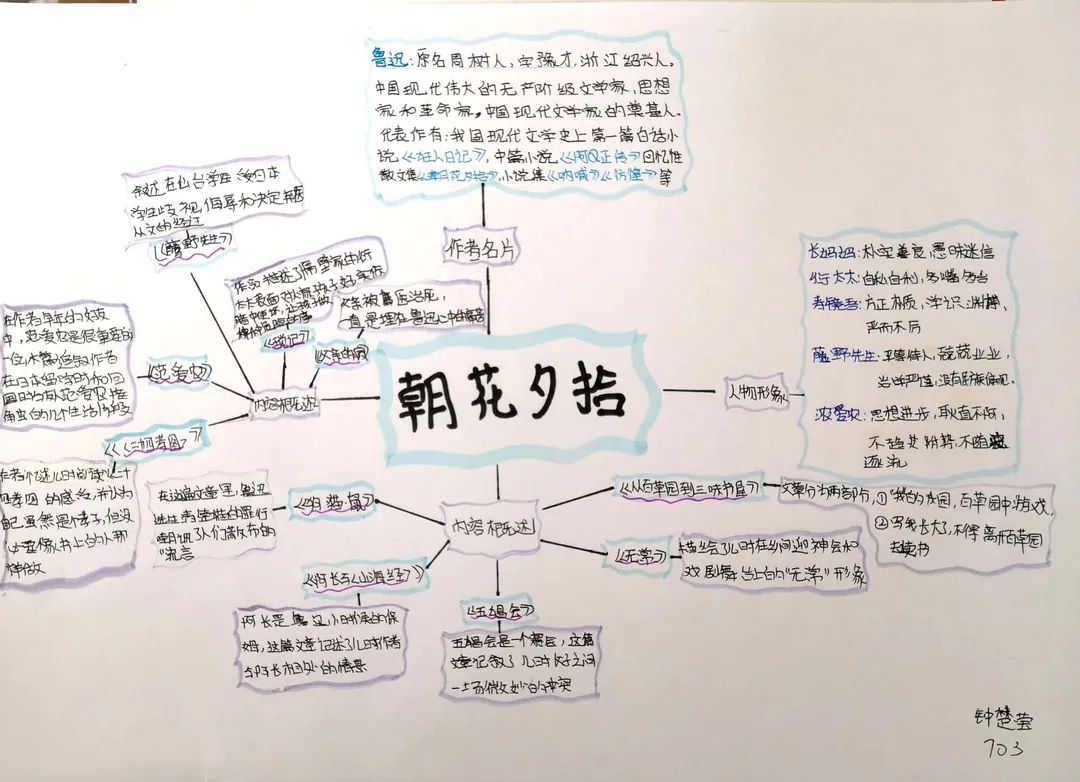 鲁迅:原名周树人,字豫才,浙江绍兴人。
中国现代伟大的无产阶级文学家,思想
家和革命家。中国现代文学家的奠基人。
代表作有:我国现代文学史上第一篇白话小
说《狂人日记》,中篇小说《阿Q正传》回忆性
散文集《朝花夕拾》,小说集《呐喊》《彷徨》等
作者名片
朝花夕拾
人物形象
长妈妈:朴实善良,愚昧迷信
衍太太:自私自利,多嘴多舌
寿镜吾:方正质朴,学识渊博,
严而不厉
藤野先生:平易待人,兢兢业业,
当述严谨,没有民族偏见。
范爱农:思想进步,耿直不阿,
不趋炎附势,不随波
逐流
叙述在仙台学医
学生歧视,侮辱和决定弃医
从文的经过
《藤野先生》
作品描述了隔壁家的衍
太太表面对
《琐记》
父亲被庸医治死,
一直是埋在鲁迅心中的痛苦
《父亲的病》
内容概述
在作者早年的好友
中,范爱农是很重要的
一位,本篇追叙作者
在日本留学时和回
国后与范爱农接
触的几个生活片段
《范爱农》
《二十四孝图》
作者忆述儿时阅读二十
四孝图的感受,并认为
自己虽然是孝子,但没
必要像书上的人那
样做
在这篇文章里,鲁迅
《狗·猫·鼠》
内容概述
《从百草园到三味书屋》
文章分为两部分,①"我"的乐园,百草园中游戏,
②写我长大了,不得离开百草园
去读书
《无常》
描绘了儿时在乡间迎神会和
戏剧舞台上的"无常"形象
《阿长与《山海经》》
阿长是鲁迅小时候的保
姆,这篇文章记述了儿时作者
与阿长相处的情景
《五猖会》
五猖会是一个赛会,这篇
文章记叙了儿时父子之间
一场微妙的冲突
钟楚莹
703